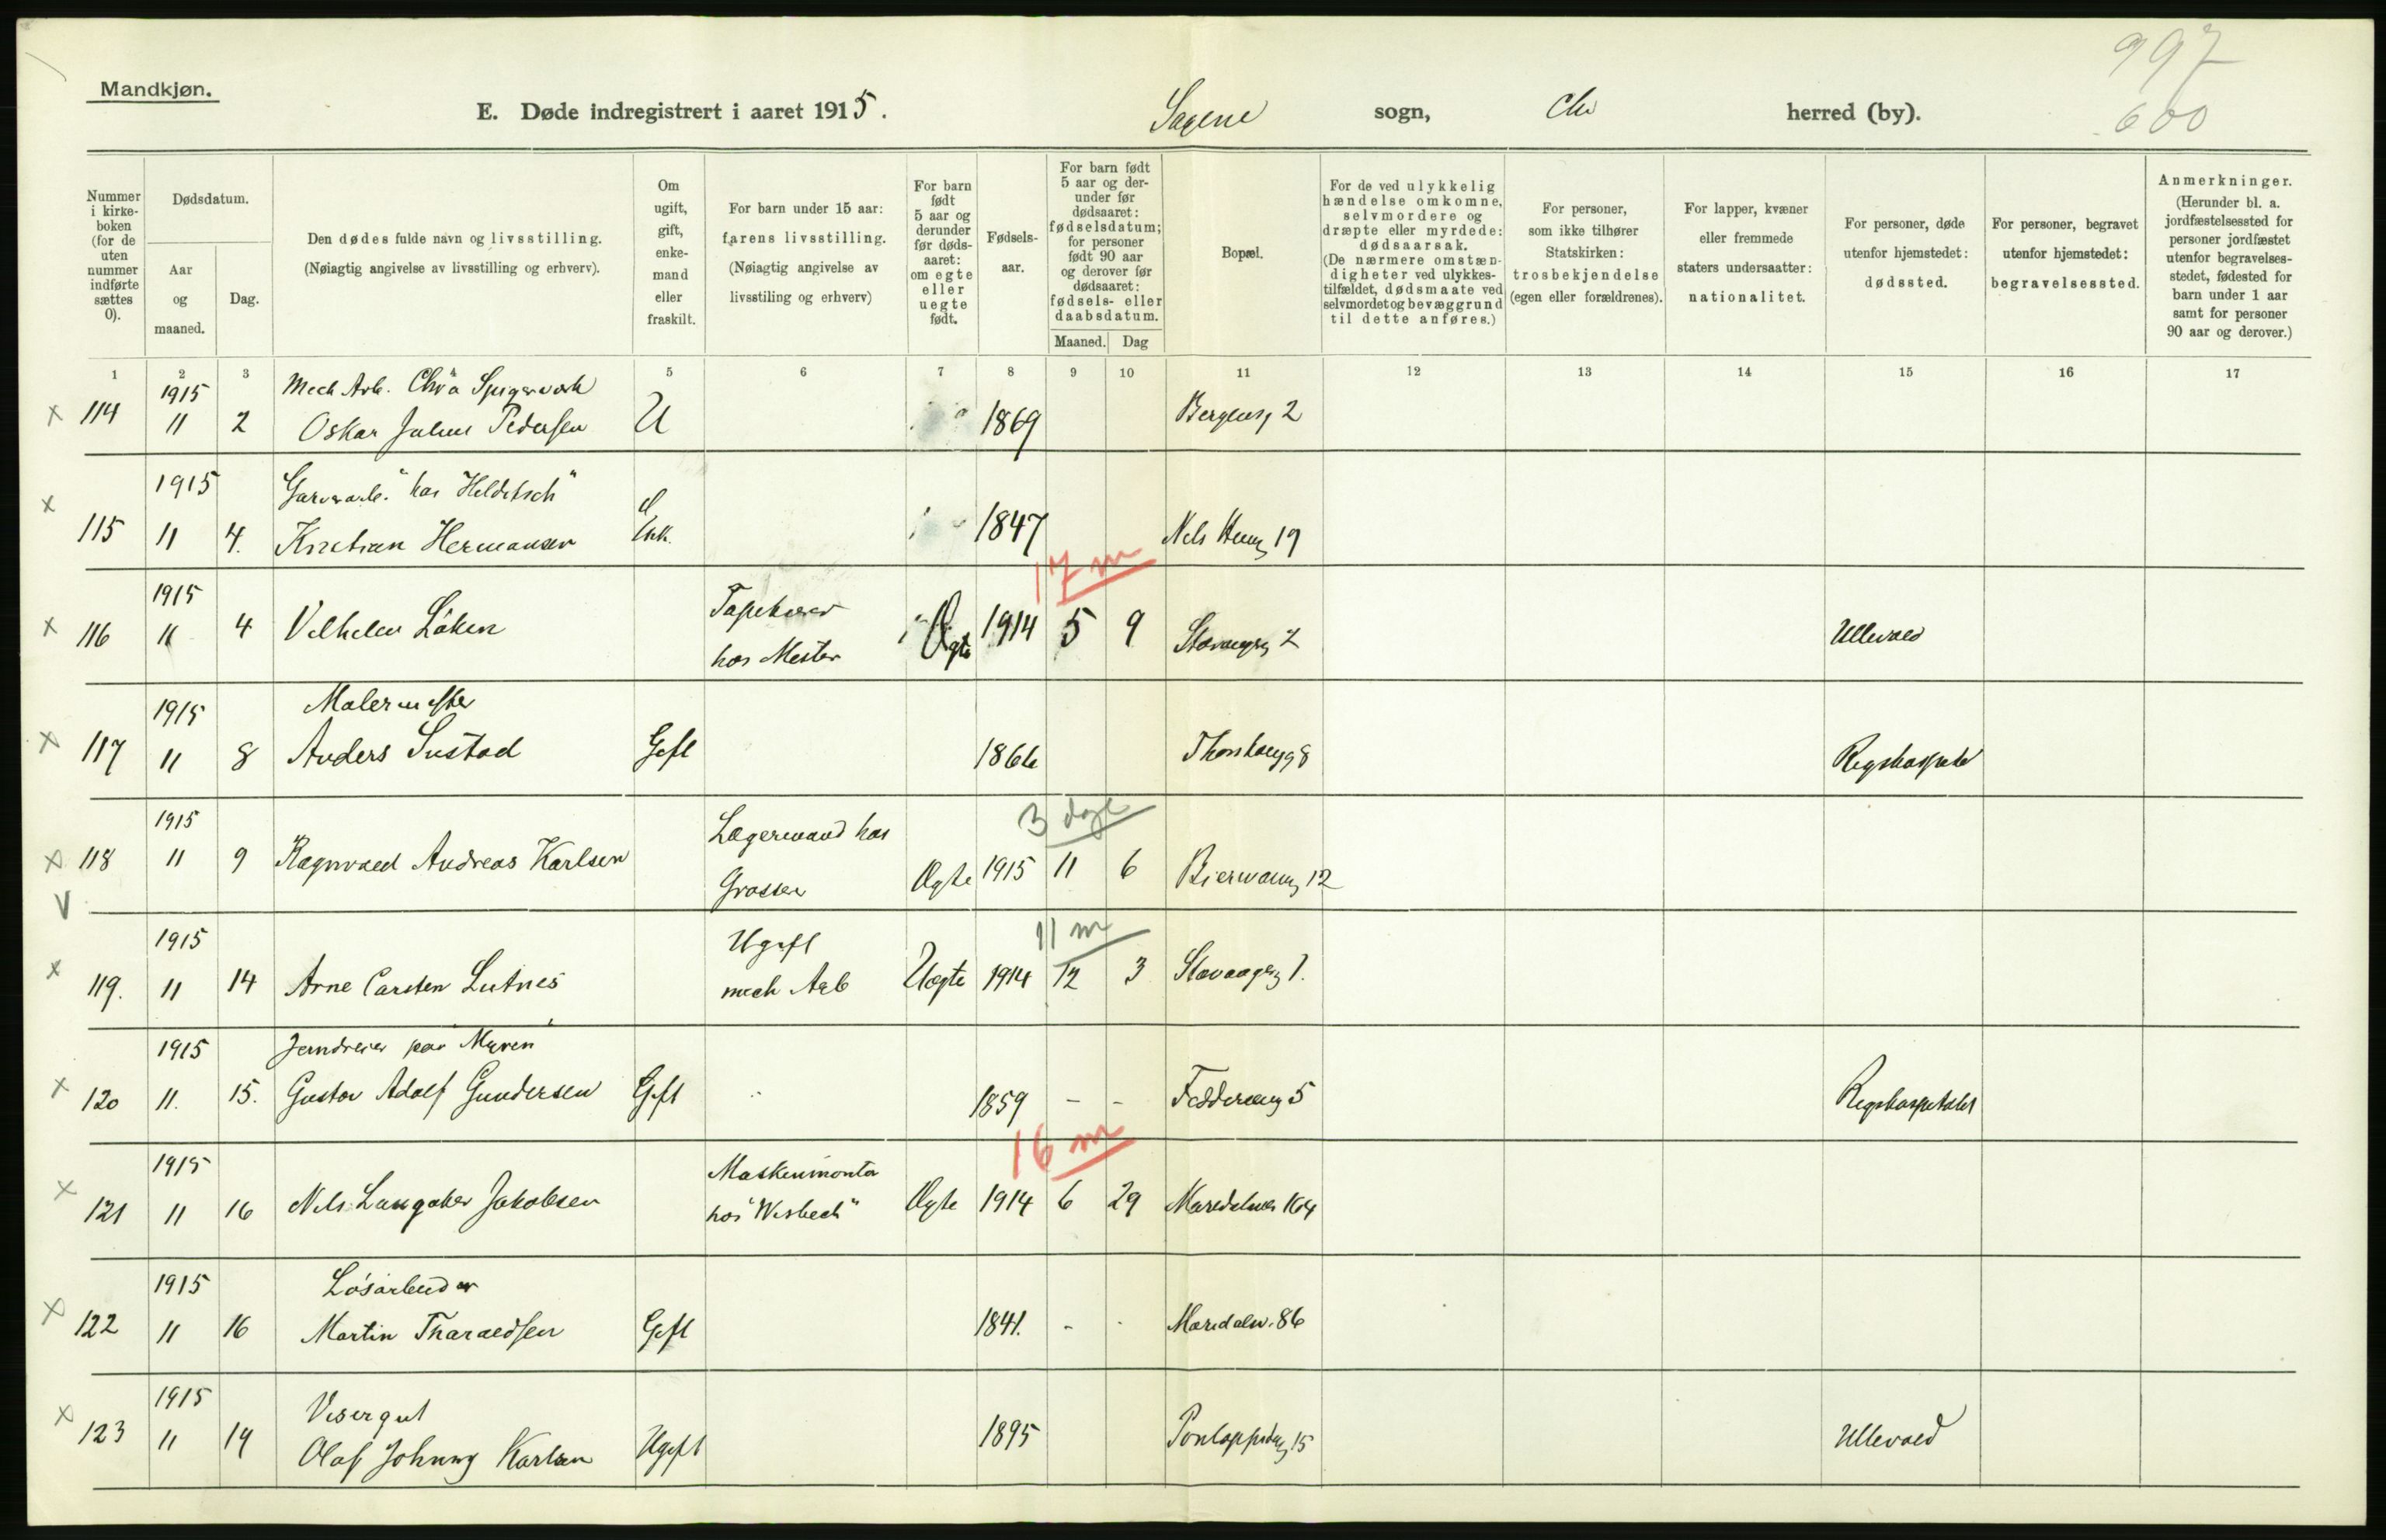 997
600
Mandkjøn.
E. Døde indregistrert i aaret 1915. Sagene sogn, Chr herred (by).
Nummer i kirke-boken (for de uten nummer indførte sættes 0).
Dødsdatum.
Aar og maaned.
Dag.
Den dødes fulde navn og livsstilling. (Nøiagtig angivelse av livsstilling og erhverv).
Om ugift, gift, enke-mand eller fraskilt.
For barn under 15 aar: farens livsstilling. (Nøiagtig angivelse av livsstiling og erhverv)
For barn født 5 aar og derunder før døds-aaret: om egte eller uegte født.
Fødsels-aar.
For barn født 5 aar og der-under før dødsaaret: fødselsdatum; for personer født 90 aar og derover før dødsaaret: fødsels- eller daabsdatum.
Maaned. Dag
Bopæl.
For de ved ulykkelig hændelse omkomne, selvmordere og dræpte eller myrdede: dødsaarsak. (De nærmere omstæn-digheter ved ulykkes-tilfældet, dødsmaate ved selvmordet og bevæggrund til dette anføres.)
For personer, som ikke tilhører Statskirken: trosbekjendelse (egen eller forældrenes).
For lapper, kvæner eller fremmede staters undersaatter: nationalitet.
For personer, døde utenfor hjemstedet: dødssted.
For personer, begravet utenfor hjemstedet: begravelsessted.
Anmerkninger. (Herunder bl. a. jordfæstelsessted for personer jordfæstet utenfor begravelses-stedet, fødested for barn under 1 aar samt for personer 90 aar og derover.)
1 2 3 5 6 7 8 9 10 11 12 13 14 15 16 17
1915 Mech Arb. Chr.a Spigerverk
x 114 11 2 Oskar Julius Pedersen U 1869 2
1915 Garverarb. hos "Helditsch"
x 115 11 4. Kristian Hermansen Enk. 1847 19
17 m
1915 Tapetserer
x 116 11 4 Vilhelm Löken hos Mester Ægte 1914 5 9 Stavangerg 2 Ullevaal
1915 Malermester
x 117 11 8 Anders Sustad Gift 1866 8 Rigshospitalet
1915 Lagermand hos 3 dage
x 118 11 9 Ragnvald Andreas Karlsen Grosser Ægte 1915 11 6 12
V
1915 Ugift 11 m
x 119. 11 14 Arne Carsten Lutnes mech Arb Uægte 1914 12 3 Stavangerg 1.
1915 Jerndreier paa Myren
x 120 11. 15. Gustav Adolf Gundersen Gift 1859 - - 5 Rigshospitalet
16 m
1915 Maskinmontør
x 121 11 16 Nils Jakobsen hos "Wisbech" Ægte 1914 6 29
1915 Løsarbeider
x 122 11 16 Martin Tharaldsen Gift 1841. - - Maridalsv. 86
1915 Visergut
x 123 11 19 Olaf Johnny Karlsen Ugift 1895 15 Ullevaal